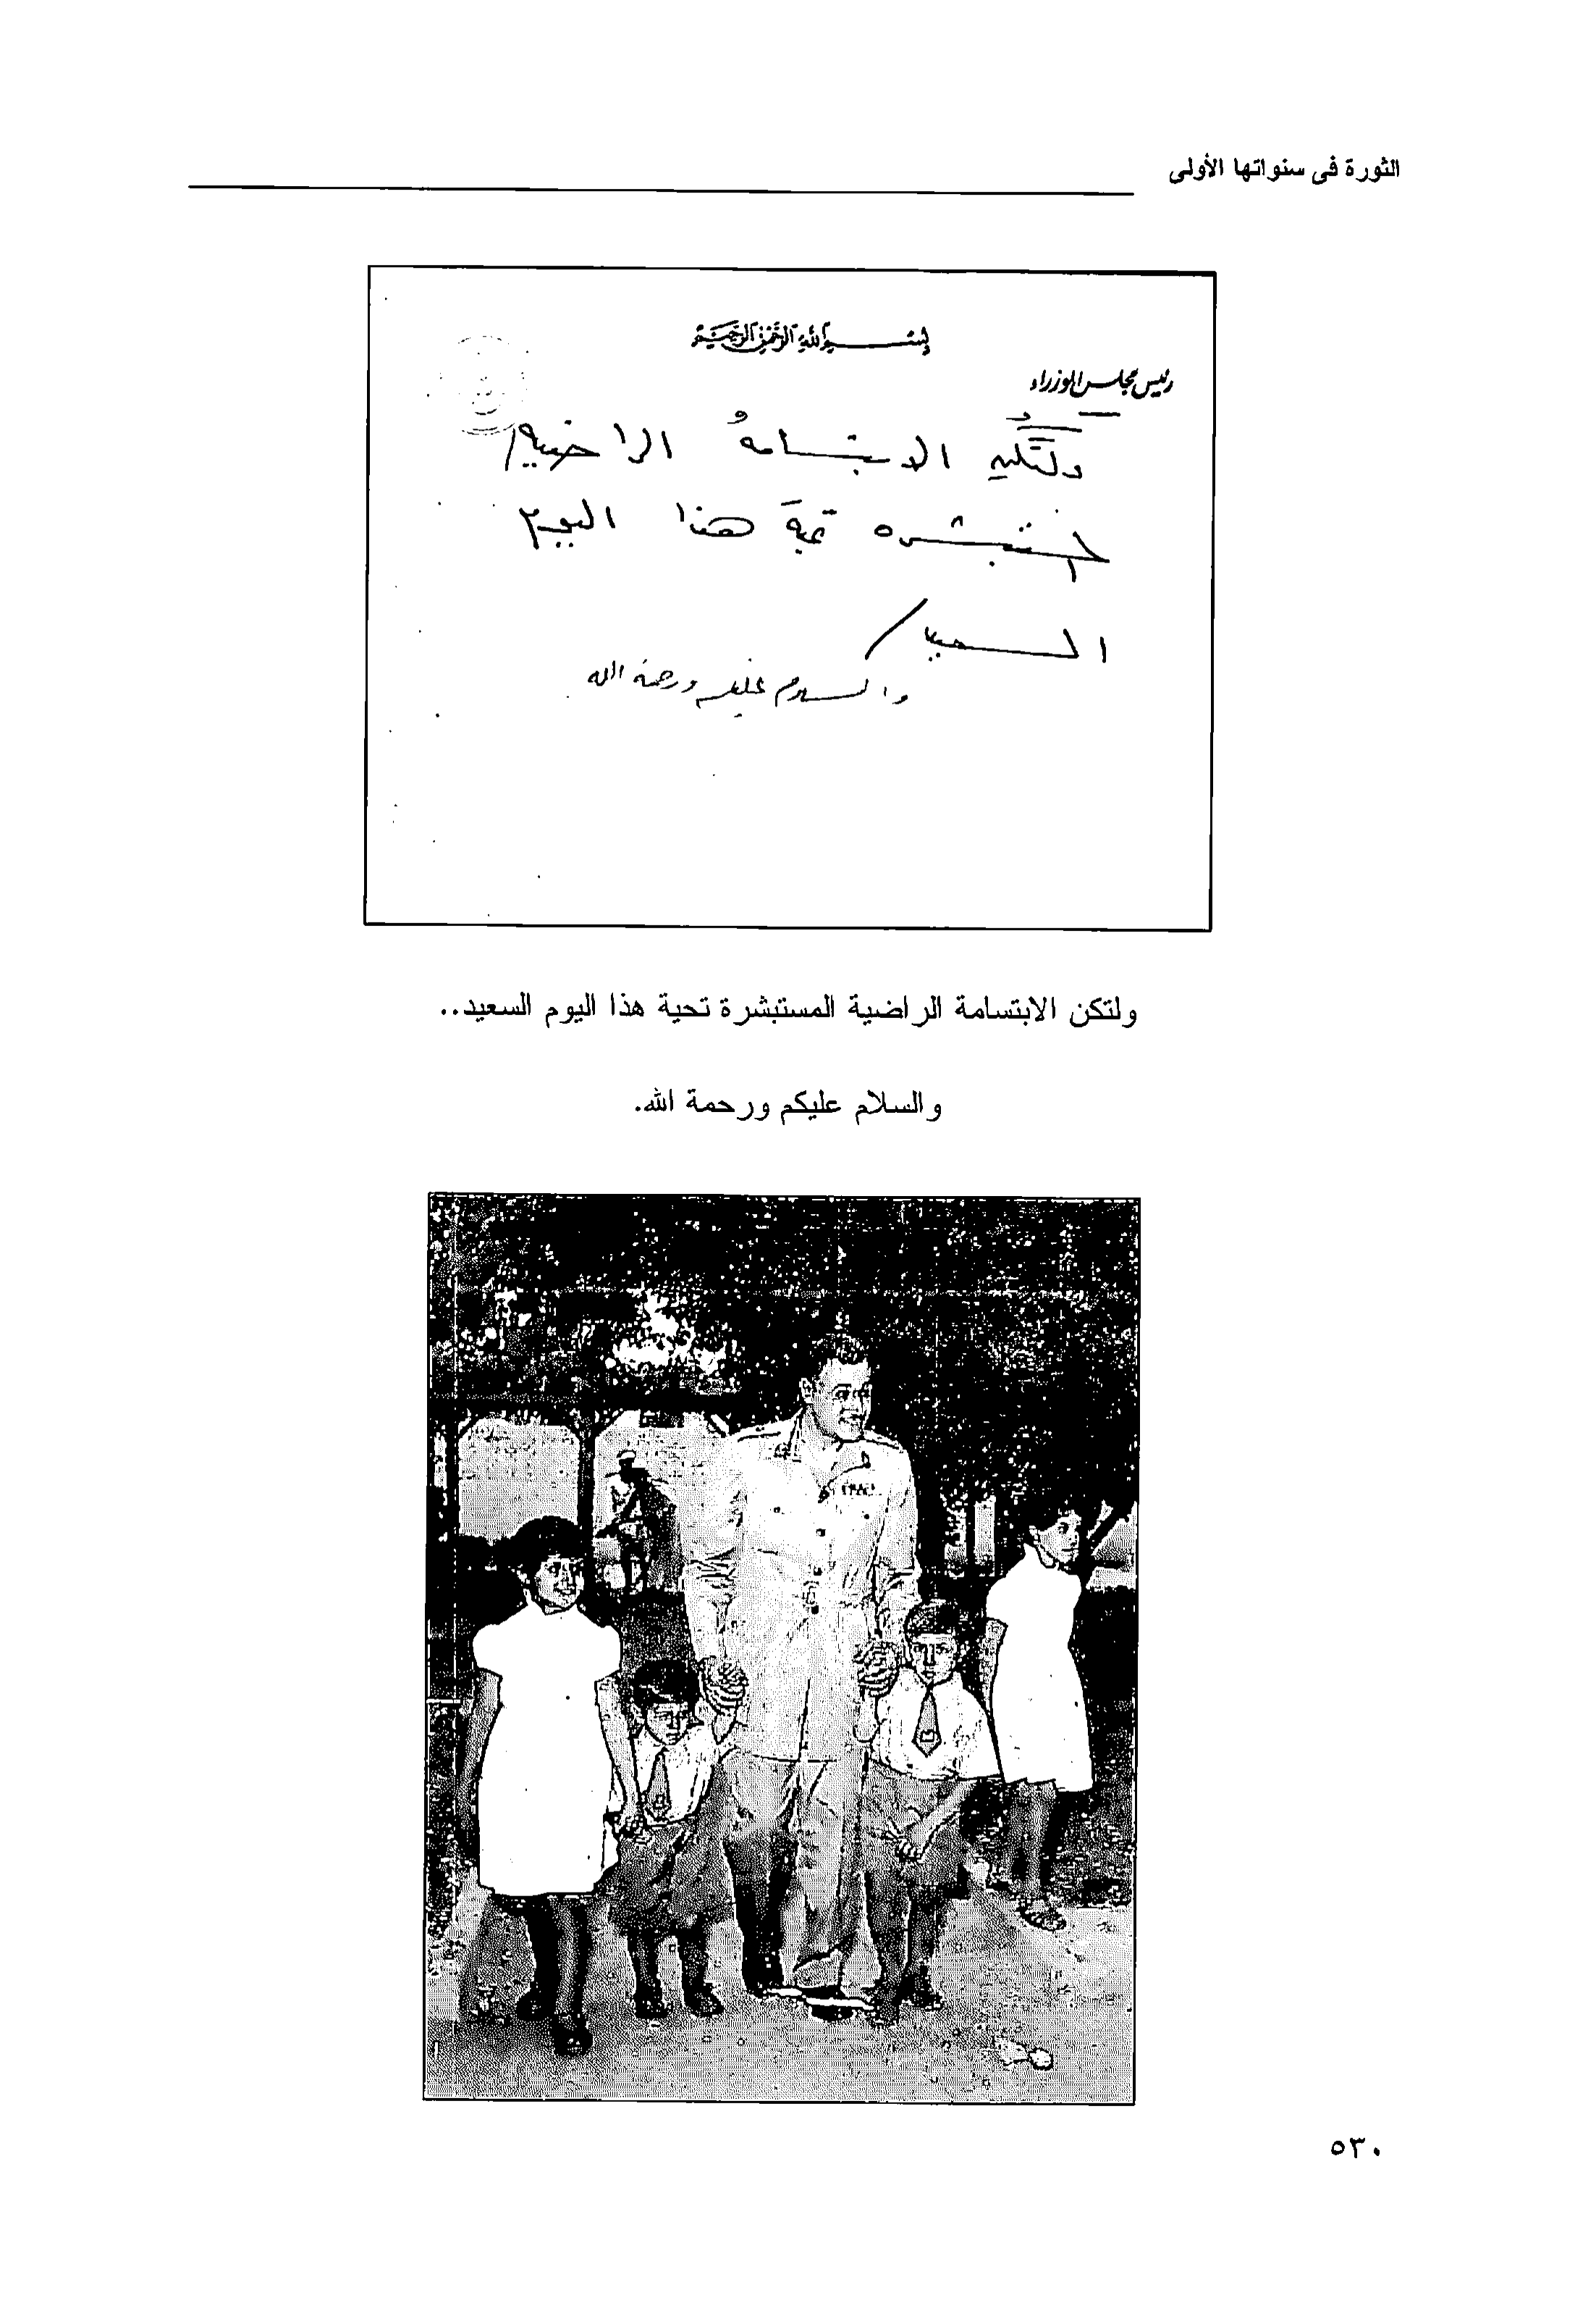 الثورة فى سنواتها الأولى
بسم الله الرحمن الرحيم
رئيس مجلس الوزراء
ولتكن الابتسامة الراضية
المستبشره تحية هذا اليوم
السعيد/
والسلام عليكم ورحمة الله
ولتكن الابتسامة الراضية المستبشرة تحية هذا اليوم السعيد..
والسلام عليكم ورحمة الله.
٥٣٠